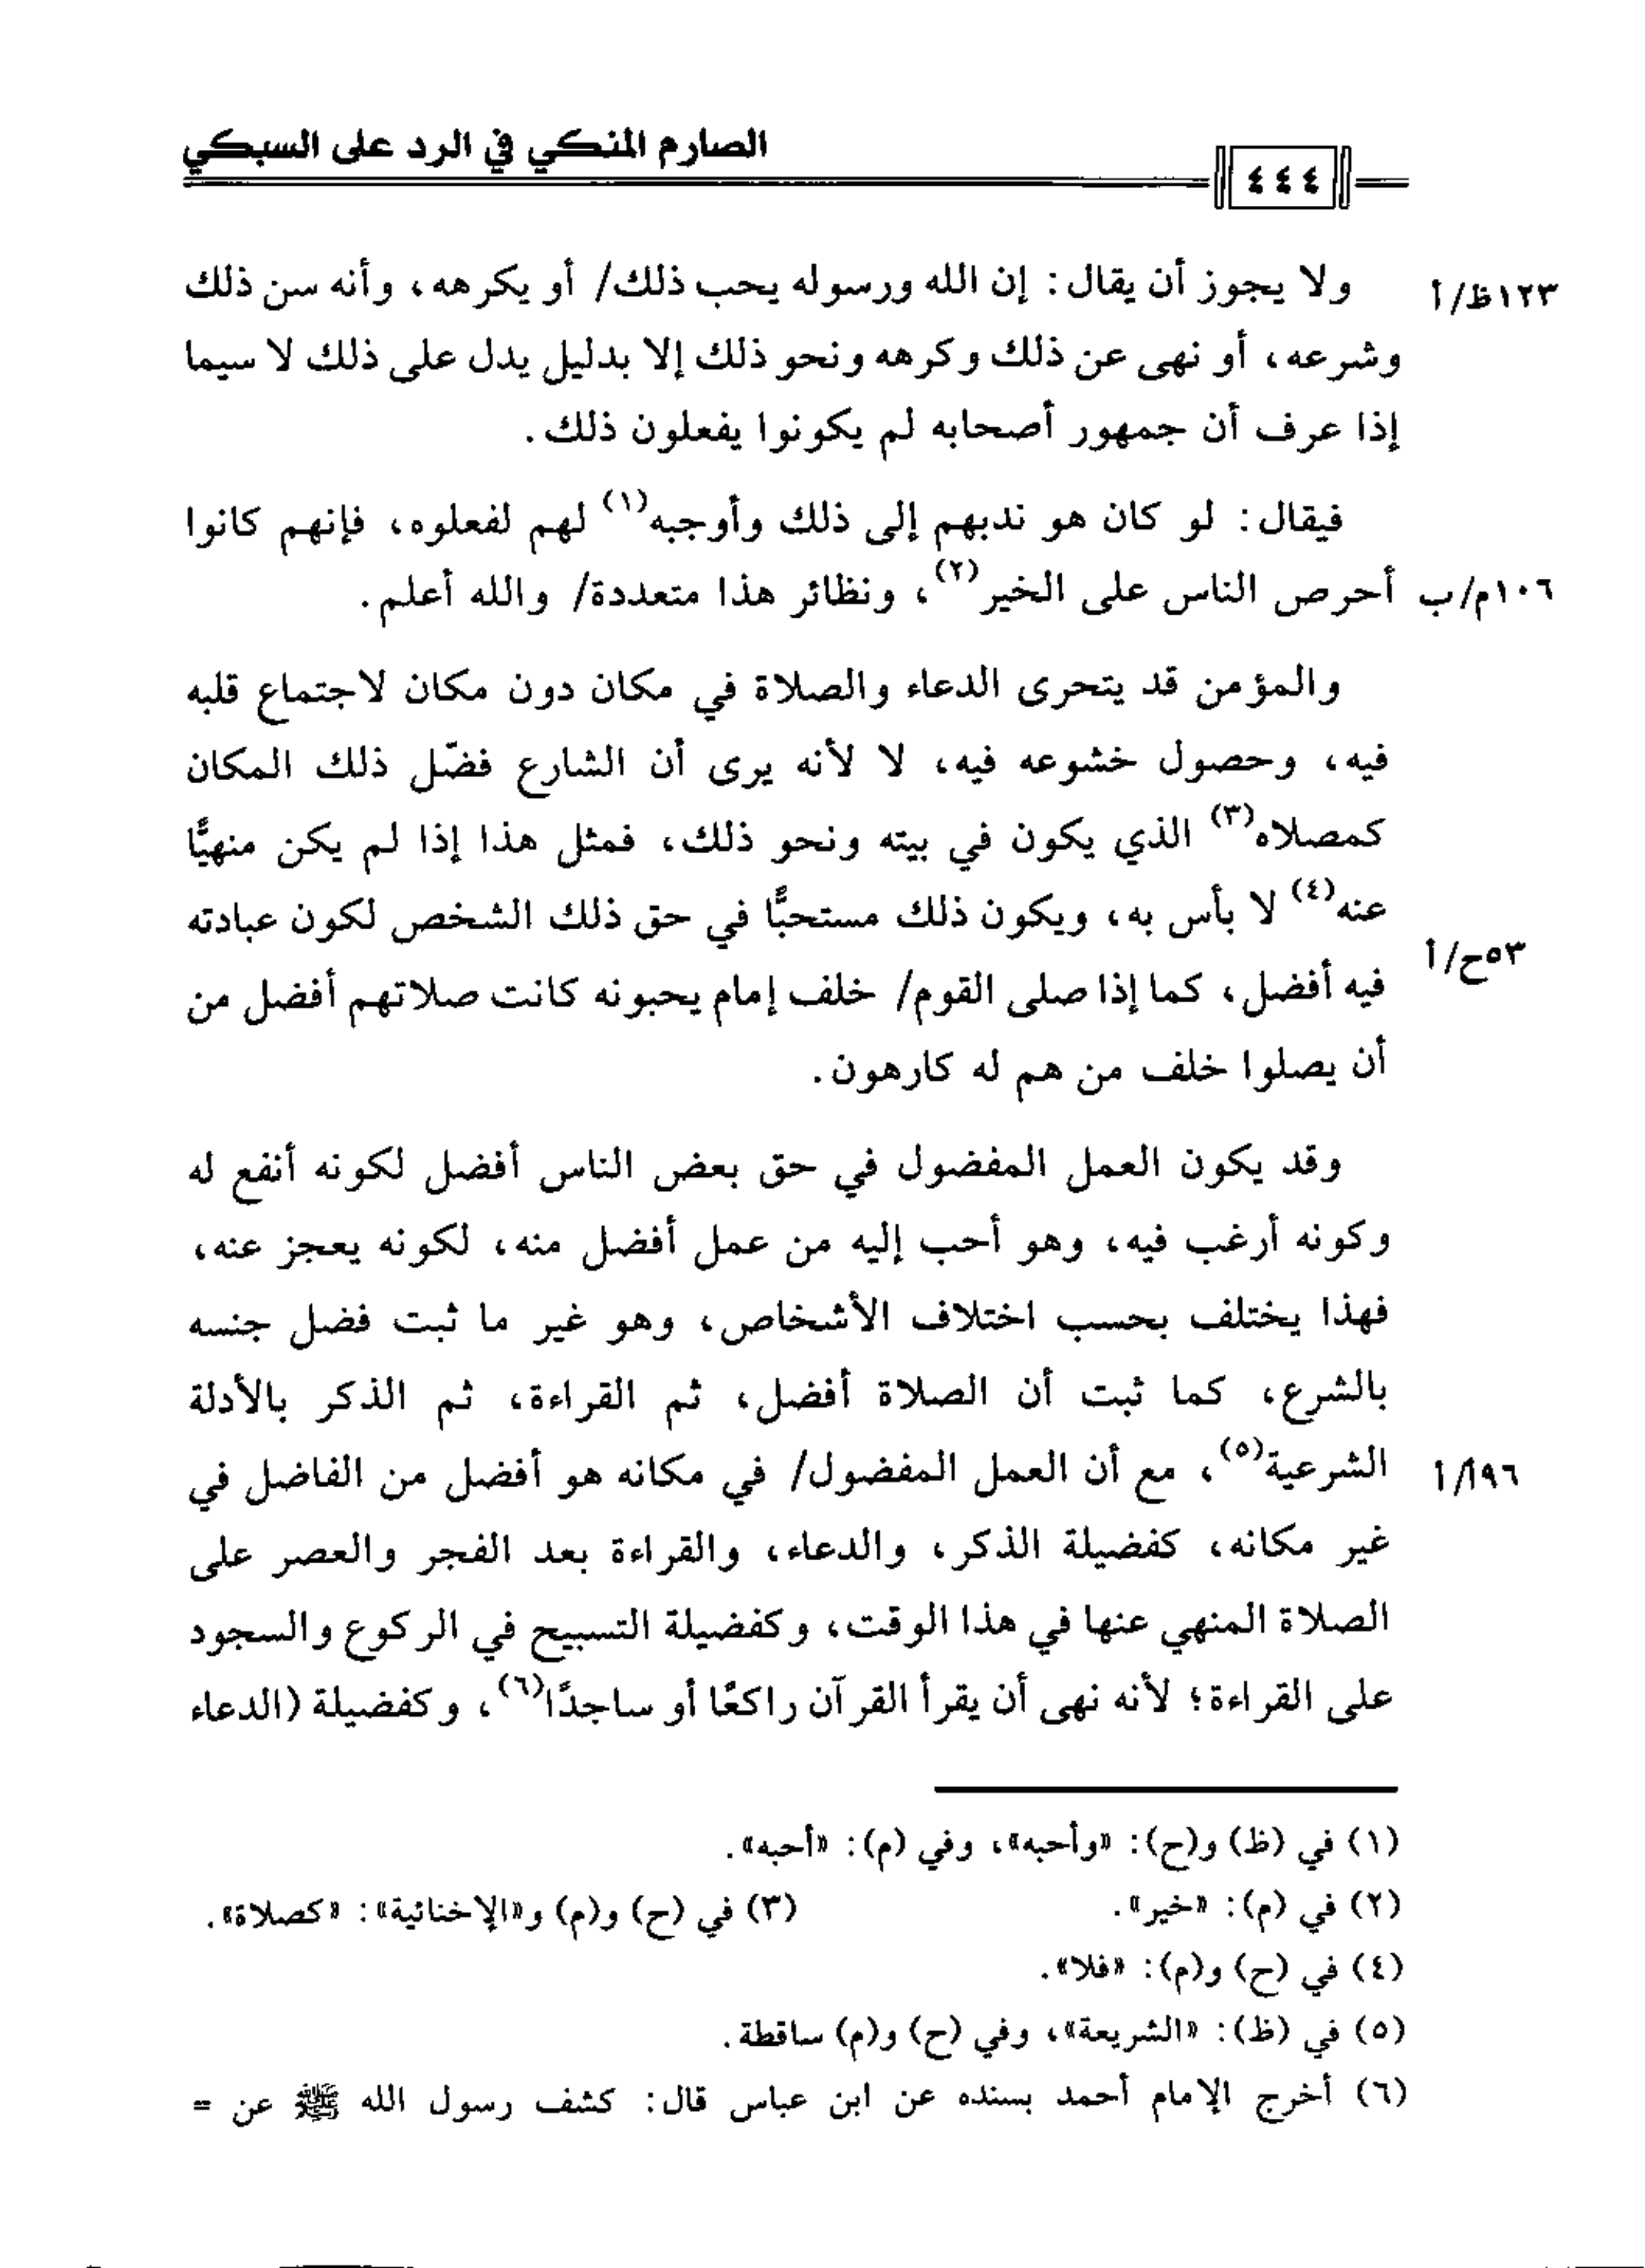 الصارم المنكي في الرد على السبكي
٤٤٤
ولا يجوز أن يقال: إن الله ورسوله يحب ذلك/ أو يكرهه، وأنه سن ذلك
١٢٣ظ/أ
وشرعه، أو نهى عن ذلك وكرهه ونحو ذلك إلا بدليل يدل على ذلك لا سيما
إذا عرف أن جمهور أصحابه لم يكونوا يفعلون ذلك.
فيقال: لو كان هو ندبهم إلى ذلك وأوجبه(١) لهم لفعلوه، فإنهم كانوا
أحرص الناس على الخير(٢)، ونظائر هذا متعددة/ والله أعلم.
١٠٦م/ب
والمؤمن قد يتحرى الدعاء والصلاة في مكان دون مكان لاجتماع قلبه
فيه، وحصول خشوعه فيه، لا لأنه يرى أن الشارع فضّل ذلك المكان
كمصلاه(٣) الذي يكون في بيته ونحو ذلك، فمثل هذا إذا لم يكن منهيًّا
عنه(٤) لا بأس به، ويكون ذلك مستحبًّا في حق ذلك الشخص لكون عبادته
٥٣ح/أ
فيه أفضل، كما إذا صلى القوم/ خلف إمام يحبونه كانت صلاتهم أفضل من
أن يصلوا خلف من هم له كارهون.
وقد يكون العمل المفضول في حق بعض الناس أفضل لكونه أنفع له
وكونه أرغب فيه، وهو أحب إليه من عمل أفضل منه، لكونه يعجز عنه،
فهذا يختلف بحسب اختلاف الأشخاص، وهو غير ما ثبت فضل جنسه
بالشرع، كما ثبت أن الصلاة أفضل، ثم القراءة، ثم الذكر بالأدلة
الشرعية(٥)، مع أن العمل المفضول/ في مكانه هو أفضل من الفاضل في
١٩٦أ/أ
غير مكانه، كفضيلة الذكر، والدعاء، والقراءة بعد الفجر والعصر على
الصلاة المنهي عنها في هذا الوقت، وكفضيلة التسبيح في الركوع والسجود
على القراءة؛ لأنه نهى أن يقرأ القرآن راكعًا أو ساجدًا(٦)، وكفضيلة (الدعاء
(١) في (ظ) و(ح): «وأحبه»، وفي (م): «أحبه».
(٢) في (م): «خير».
(٣) في (ح) و(م) و«الإخنائية»: «كصلاة».
(٤) في (ح) و(م): «فلا».
(٥) في (ظ): «الشريعة»، وفي (ح) و(م) ساقطة.
(٦) أخرج الإمام أحمد بسنده عن ابن عباس قال: كشف رسول الله ﷺ عن =